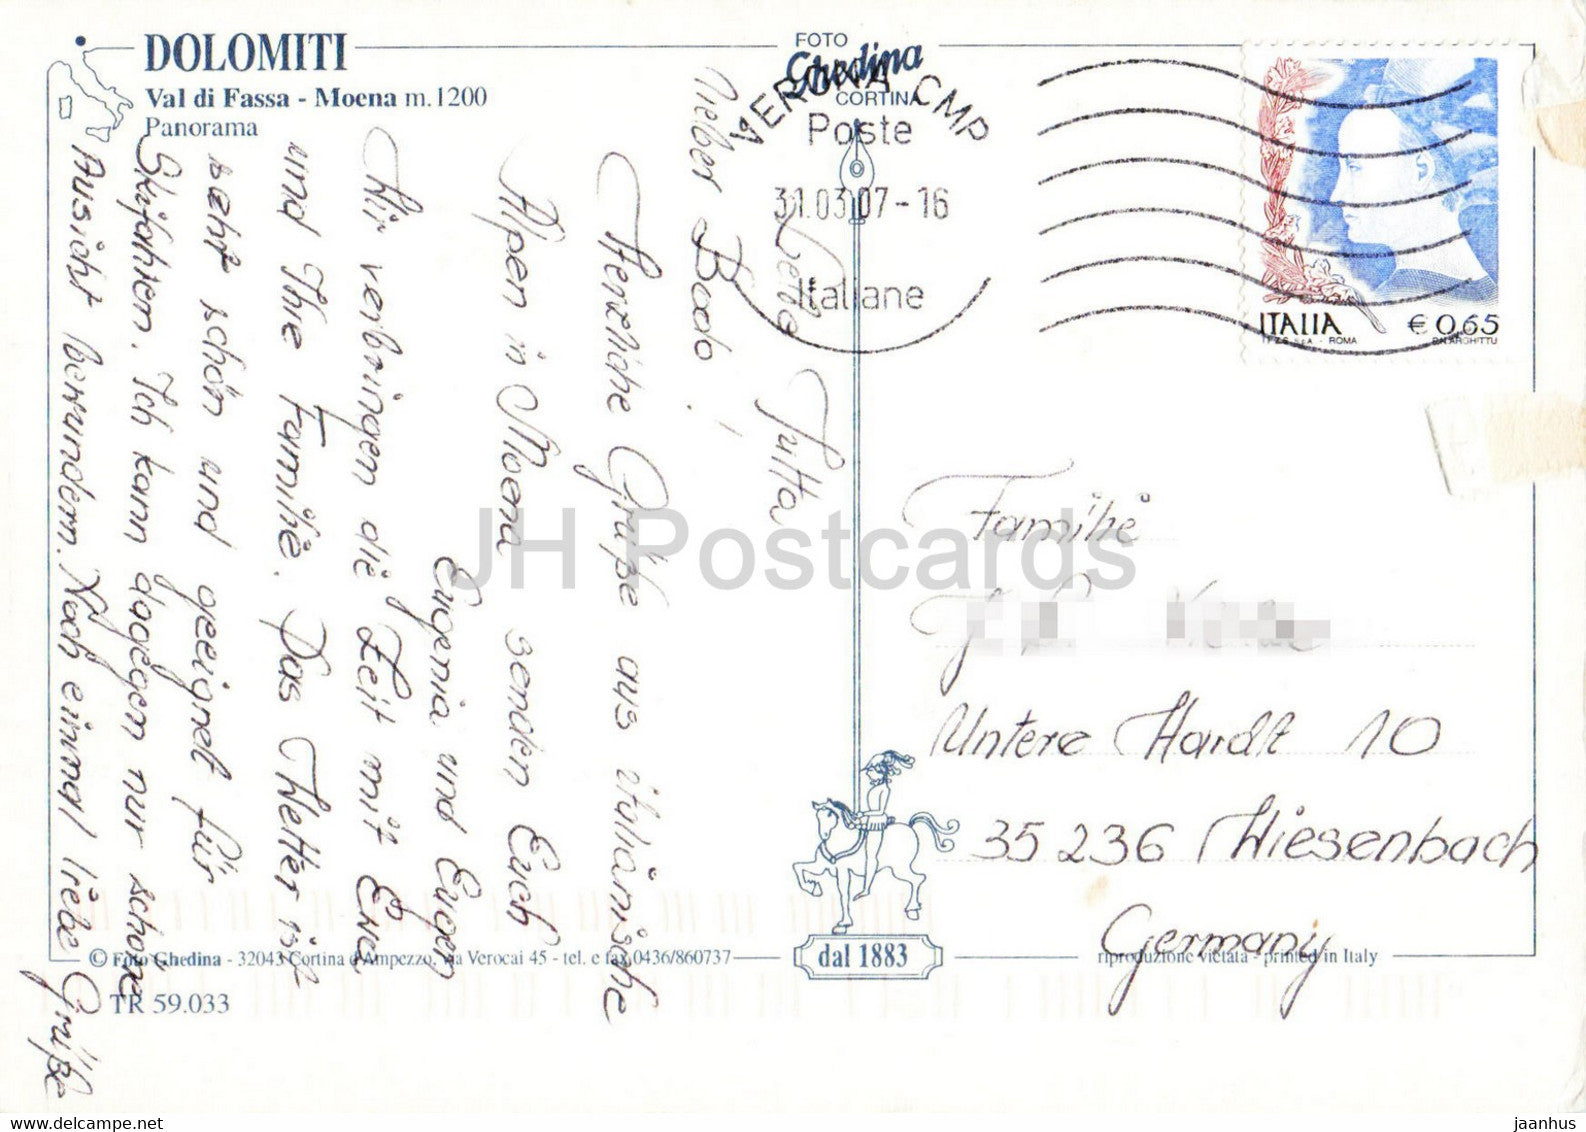 DOLOMITI
Val di Fassa - Moena m.1200
Panorama
FOTO
Ghedina
CORTINA
VERONA CMP
Poste
31.03.07-16
Italiane
ITALIA € 0,65
I.P.Z.S. S.p.A. - ROMA
Lieber Bodo!
Herzliche Grüße aus italiänische
Alpen in Moena senden Euch
Eugenia und Eugen
Wir verbringen die Zeit mit Eva
und Ihre Familie. Das Wetter ist
sehr schön und geeignet für
Skifahren. Ich kann dagegen nur schöne
Aussicht bewundern. Noch einmal liebe Grüße
Jutta
Familie
Untere Hardt 10
35236 Wiesenbach
Germany
JH Postcards
dal 1883
© Foto Ghedina - 32043 Cortina d'Ampezzo, via Verocai 45 - tel. e fax 0436/860737
riproduzione vietata - printed in Italy
TR 59.033
jaanhus